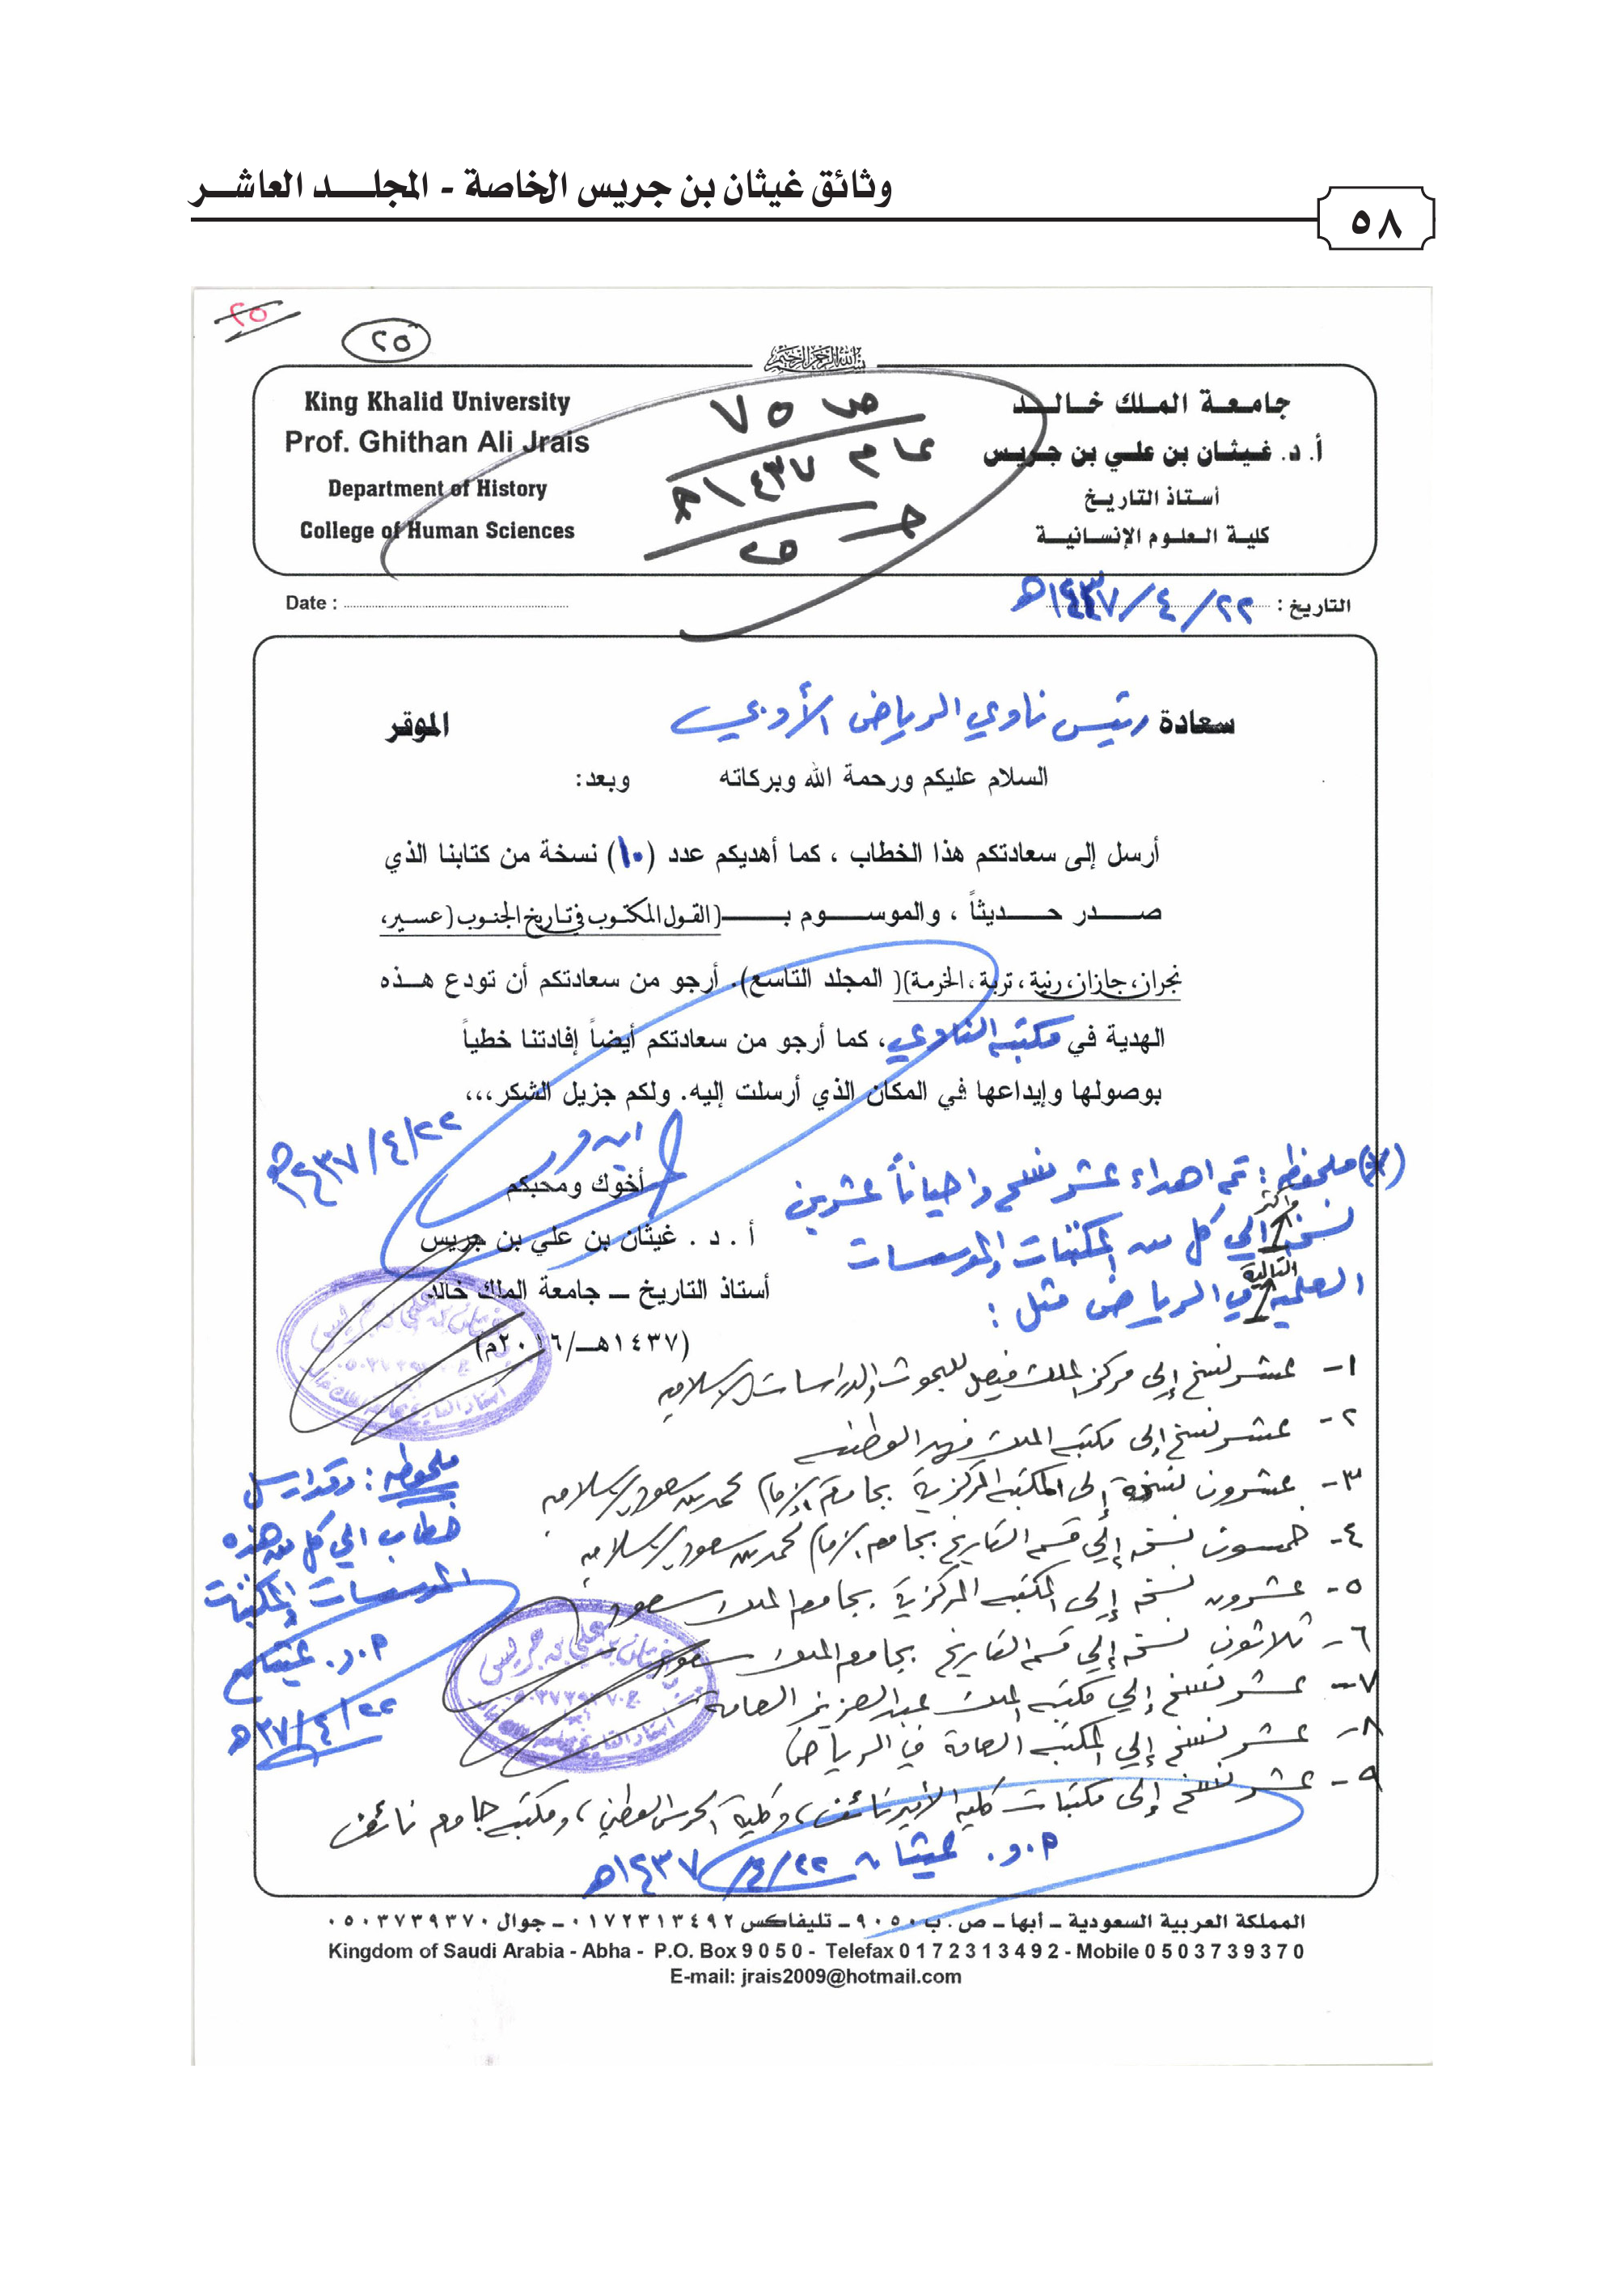 وثائق غيثان بن جريس الخاصة - المجلد العاشر
٥٨
٢٥
٢٥
بسم الله الرحمن الرحيم
جامعة الملك خالد
أ. د. غيثان بن علي بن جريس
أستاذ التاريخ
كلية العلوم الإنسانية
King Khalid University
Prof. Ghithan Ali Jrais
Department of History
College of Human Sciences
ص ٧٥
عام ١٤٣٧هـ
٢٥
التاريخ : ٢٢/٤/١٤٣٧هـ
Date :
سعادة رئيس نادي الرياض الأدبي الموقر
السلام عليكم ورحمة الله وبركاته وبعد:
أرسل إلى سعادتكم هذا الخطاب ، كما أهديكم عدد (١٠) نسخة من كتابنا الذي
صدر حديثاً ، والموسوم بـ (القول المكتوب في تاريخ الجنوب (عسير،
نجران، جازان، رنية، تربة، الخرمة)( المجلد التاسع). أرجو من سعادتكم أن تودع هذه
الهدية في مكتبة النادي، كما أرجو من سعادتكم أيضاً إفادتنا خطياً
بوصولها وإيداعها في المكان الذي أرسلت إليه. ولكم جزيل الشكر،،،
٢٢/٤/١٤٣٧هـ
أخوك ومحبكم
أ . د . غيثان بن علي بن جريس
أستاذ التاريخ – جامعة الملك خالد
(١٤٣٧هـ/٢٠١٦م)
(*) ملحوظة : تم اهداء عشر نسخ واحياناً عشرين
نسخة واكثر إلي كل من المكتبات والمؤسسات
العلمية التالية في الرياض مثل :
١- عشر نسخ إلى مركز الملك فيصل للبحوث والدراسات الإسلامية
٢- عشر نسخ إلى مكتبة الملك فهد الوطنية
٣- عشرون نسخة إلى المكتبة المركزية بجامعة الإمام محمد بن سعود الإسلامية
٤- خمسون نسخة إلي قسم التاريخ بجامعة الإمام محمد بن سعود الإسلامية
٥- عشرون نسخة إلى المكتبة المركزية بجامعة الملك سعود
٦- ثلاثون نسخة إلي قسم التاريخ بجامعة الملك سعود
٧- عشر نسخ إلي مكتبة الملك عبدالعزيز العامة
٨- عشر نسخ إلي المكتبة العامة في الرياض
٩- عشر نسخ إلى مكتبات كلية الأمير نائف، وكلية الحرس الوطني، ومكتبة جامعة نائف
أ.د. غيثان ٢٢/٤/١٤٣٧هـ
ملحوظة : وقد ارسل
خطاب الي كل من هذه
المؤسسات والمكتبات
أ.د. غيثان
٢٢/٤/٣٧هـ
غيثان بن علي بن جريس
ج ٠٥٠٣٧٣٩٣٧٠
أستاذ التاريخ بجامعة الملك خالد
غيثان بن علي بن جريس
ج ٠٥٠٣٧٣٩٣٧٠
أستاذ التاريخ بجامعة الملك خالد
المملكة العربية السعودية – أبها – ص . ب ٩٠٥٠ – تليفاكس ٠١٧٢٣١٣٤٩٢ – جوال ٠٥٠٣٧٣٩٣٧٠
Kingdom of Saudi Arabia - Abha - P.O. Box 9050 - Telefax 0172313492 - Mobile 0503739370
E-mail: jrais2009@hotmail.com